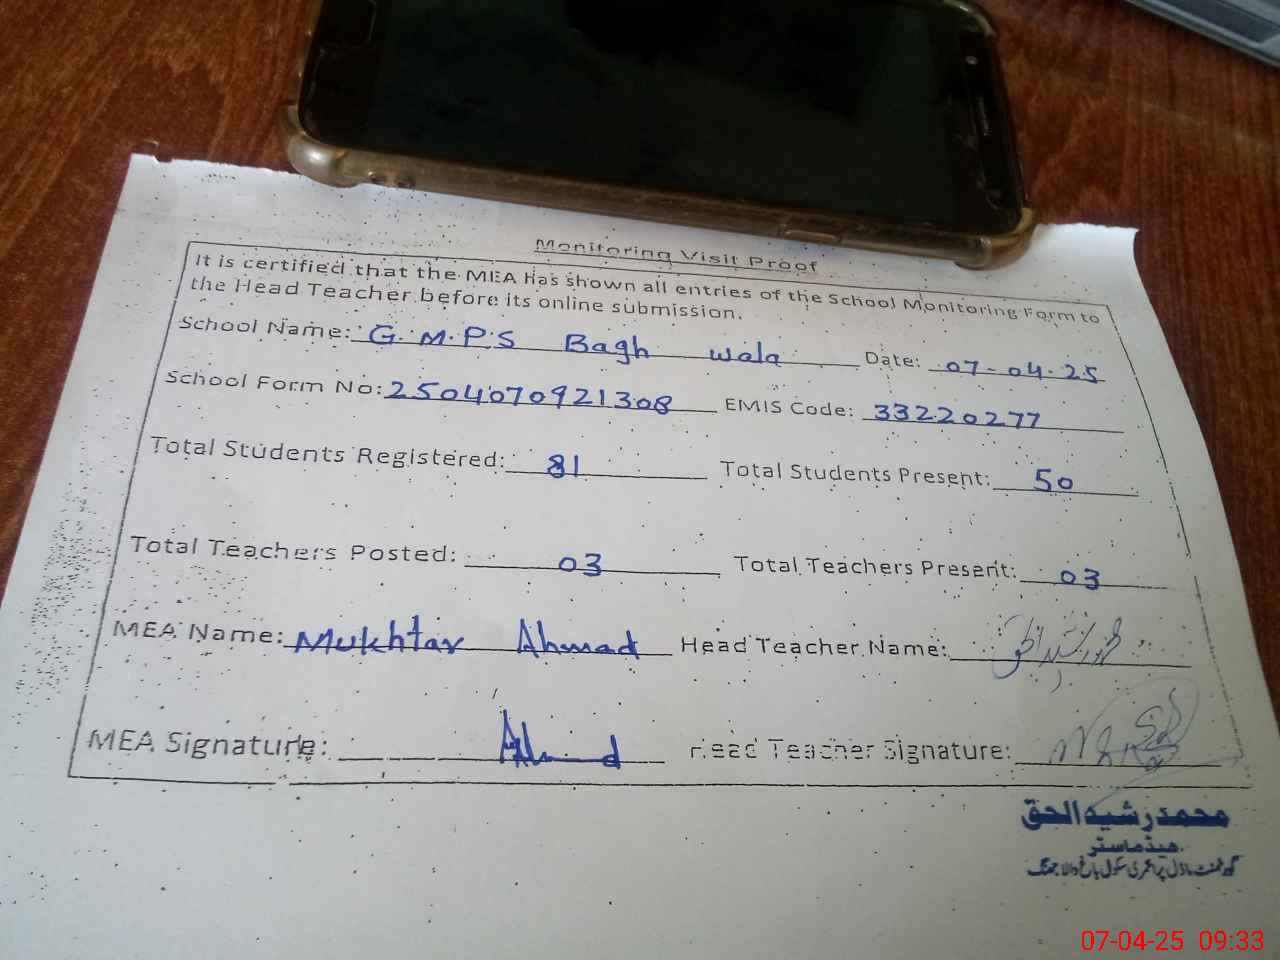 Monitoring Visit Proof
It is certified that the MEA has shown all entries of the School Monitoring Form to
the Head Teacher before its online submission.
School Name: G.M.P.S Bagh wala Date: 07-04-25
School Form No: 2504070921308 EMIS Code: 33220277
Total Students Registered: 81 Total Students Present: 50
Total Teachers Posted: 03 Total Teachers Present: 03
MEA Name: Mukhtar Ahmad Head Teacher Name: محمد رشید الحق
MEA Signature: Ahmad Head Teacher Signature:
محمد رشید الحق
ہیڈ ماسٹر
گورنمنٹ ماڈل پرائمری سکول باغ والا جھنگ
07-04-25 09:33